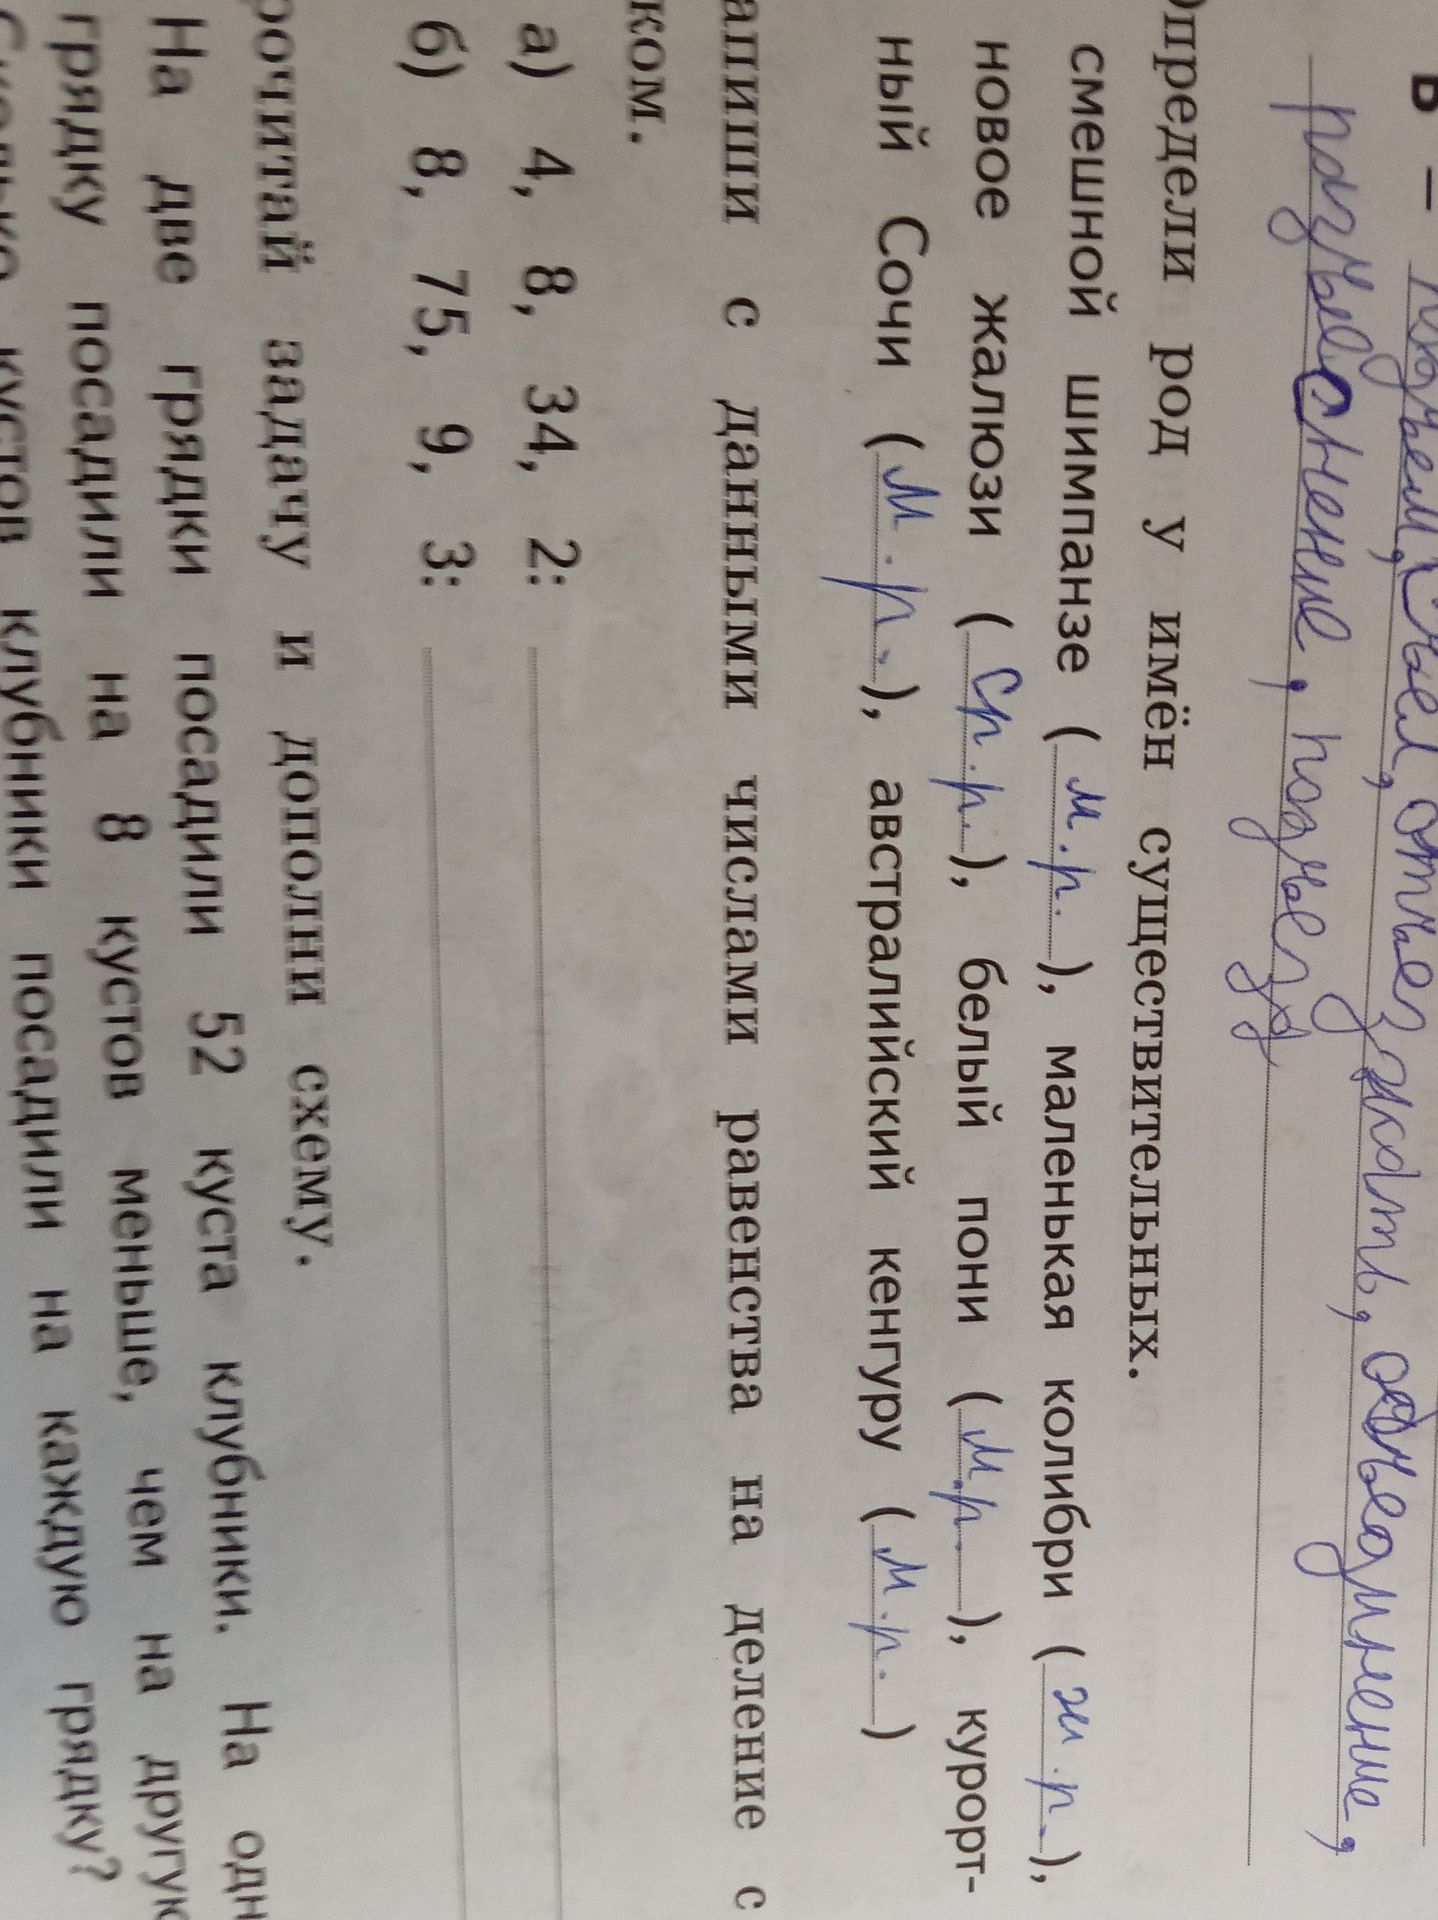 ъ – подъем, съел, отъезжать, объединение,
разъеснение, подъезд
Определи род у имён существительных.
смешной шимпанзе (м.р.), маленькая колибри (ж.р.),
новое жалюзи (ср.р.), белый пони (м.р.), курорт-
ный Сочи (м.р.), австралийский кенгуру (м.р.)
апиши с данными числами равенства на деление с
ком.
а) 4, 8, 34, 2:
б) 8, 75, 9, 3:
рочитай задачу и дополни схему.
На две грядки посадили 52 куста клубники. На одн
грядку посадили на 8 кустов меньше, чем на другую
Сколько кустов клубники посадили на каждую грядку?